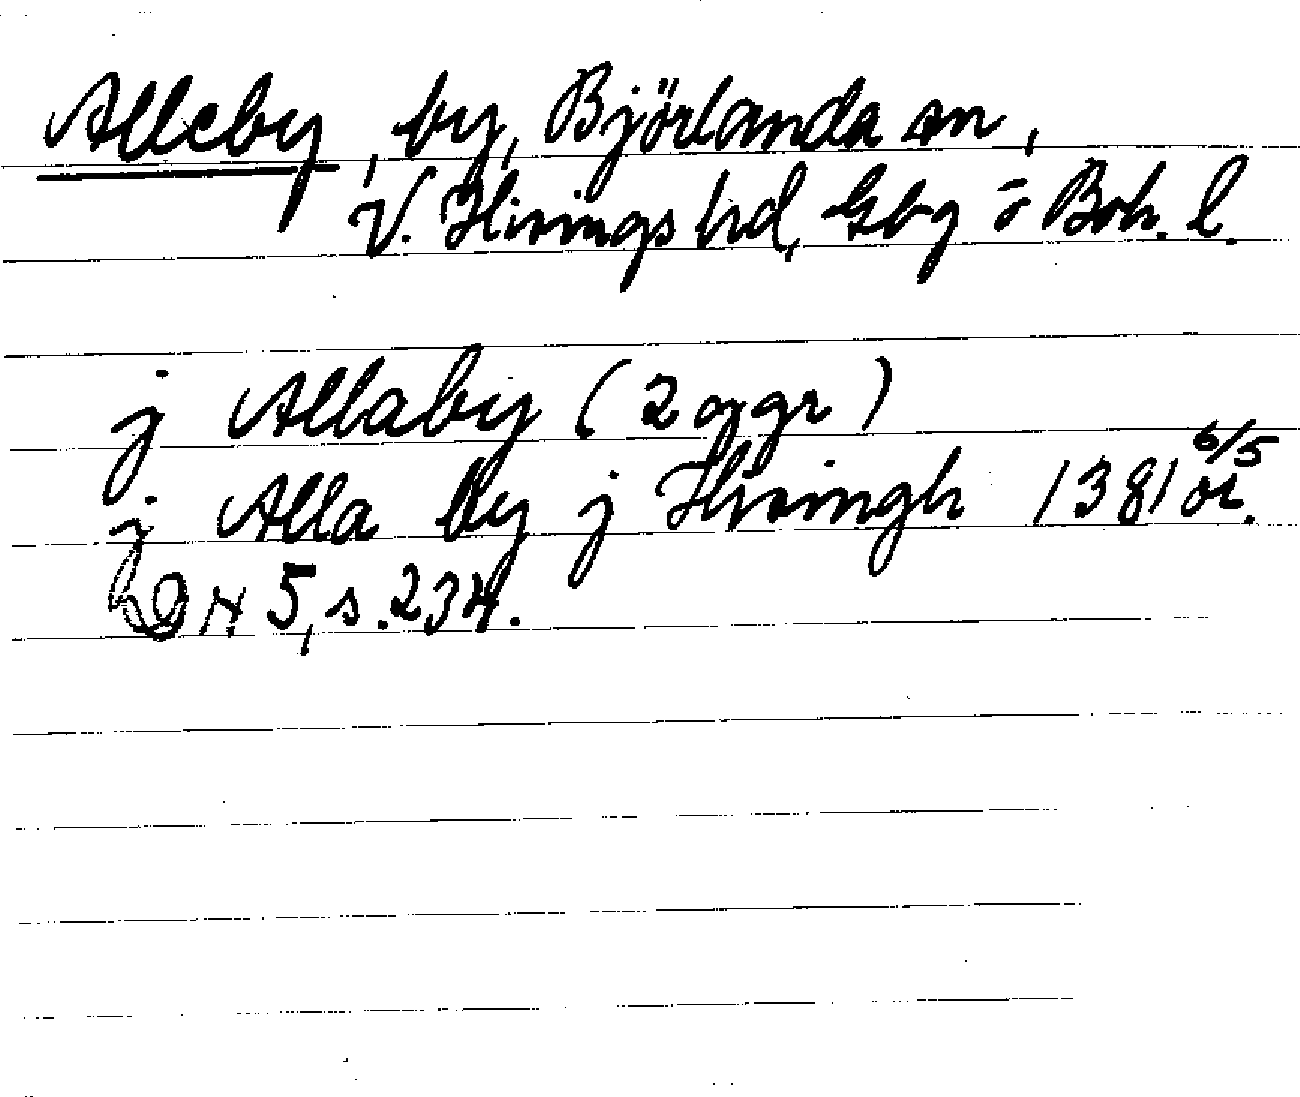 Alleby, by, Björlanda sn,
V. Hisings hd, Gbg o Boh. l.
j Allaby (2 ggr)
j Alla by j Hisingh 1381 6/5 or.
DN 5, s. 234.